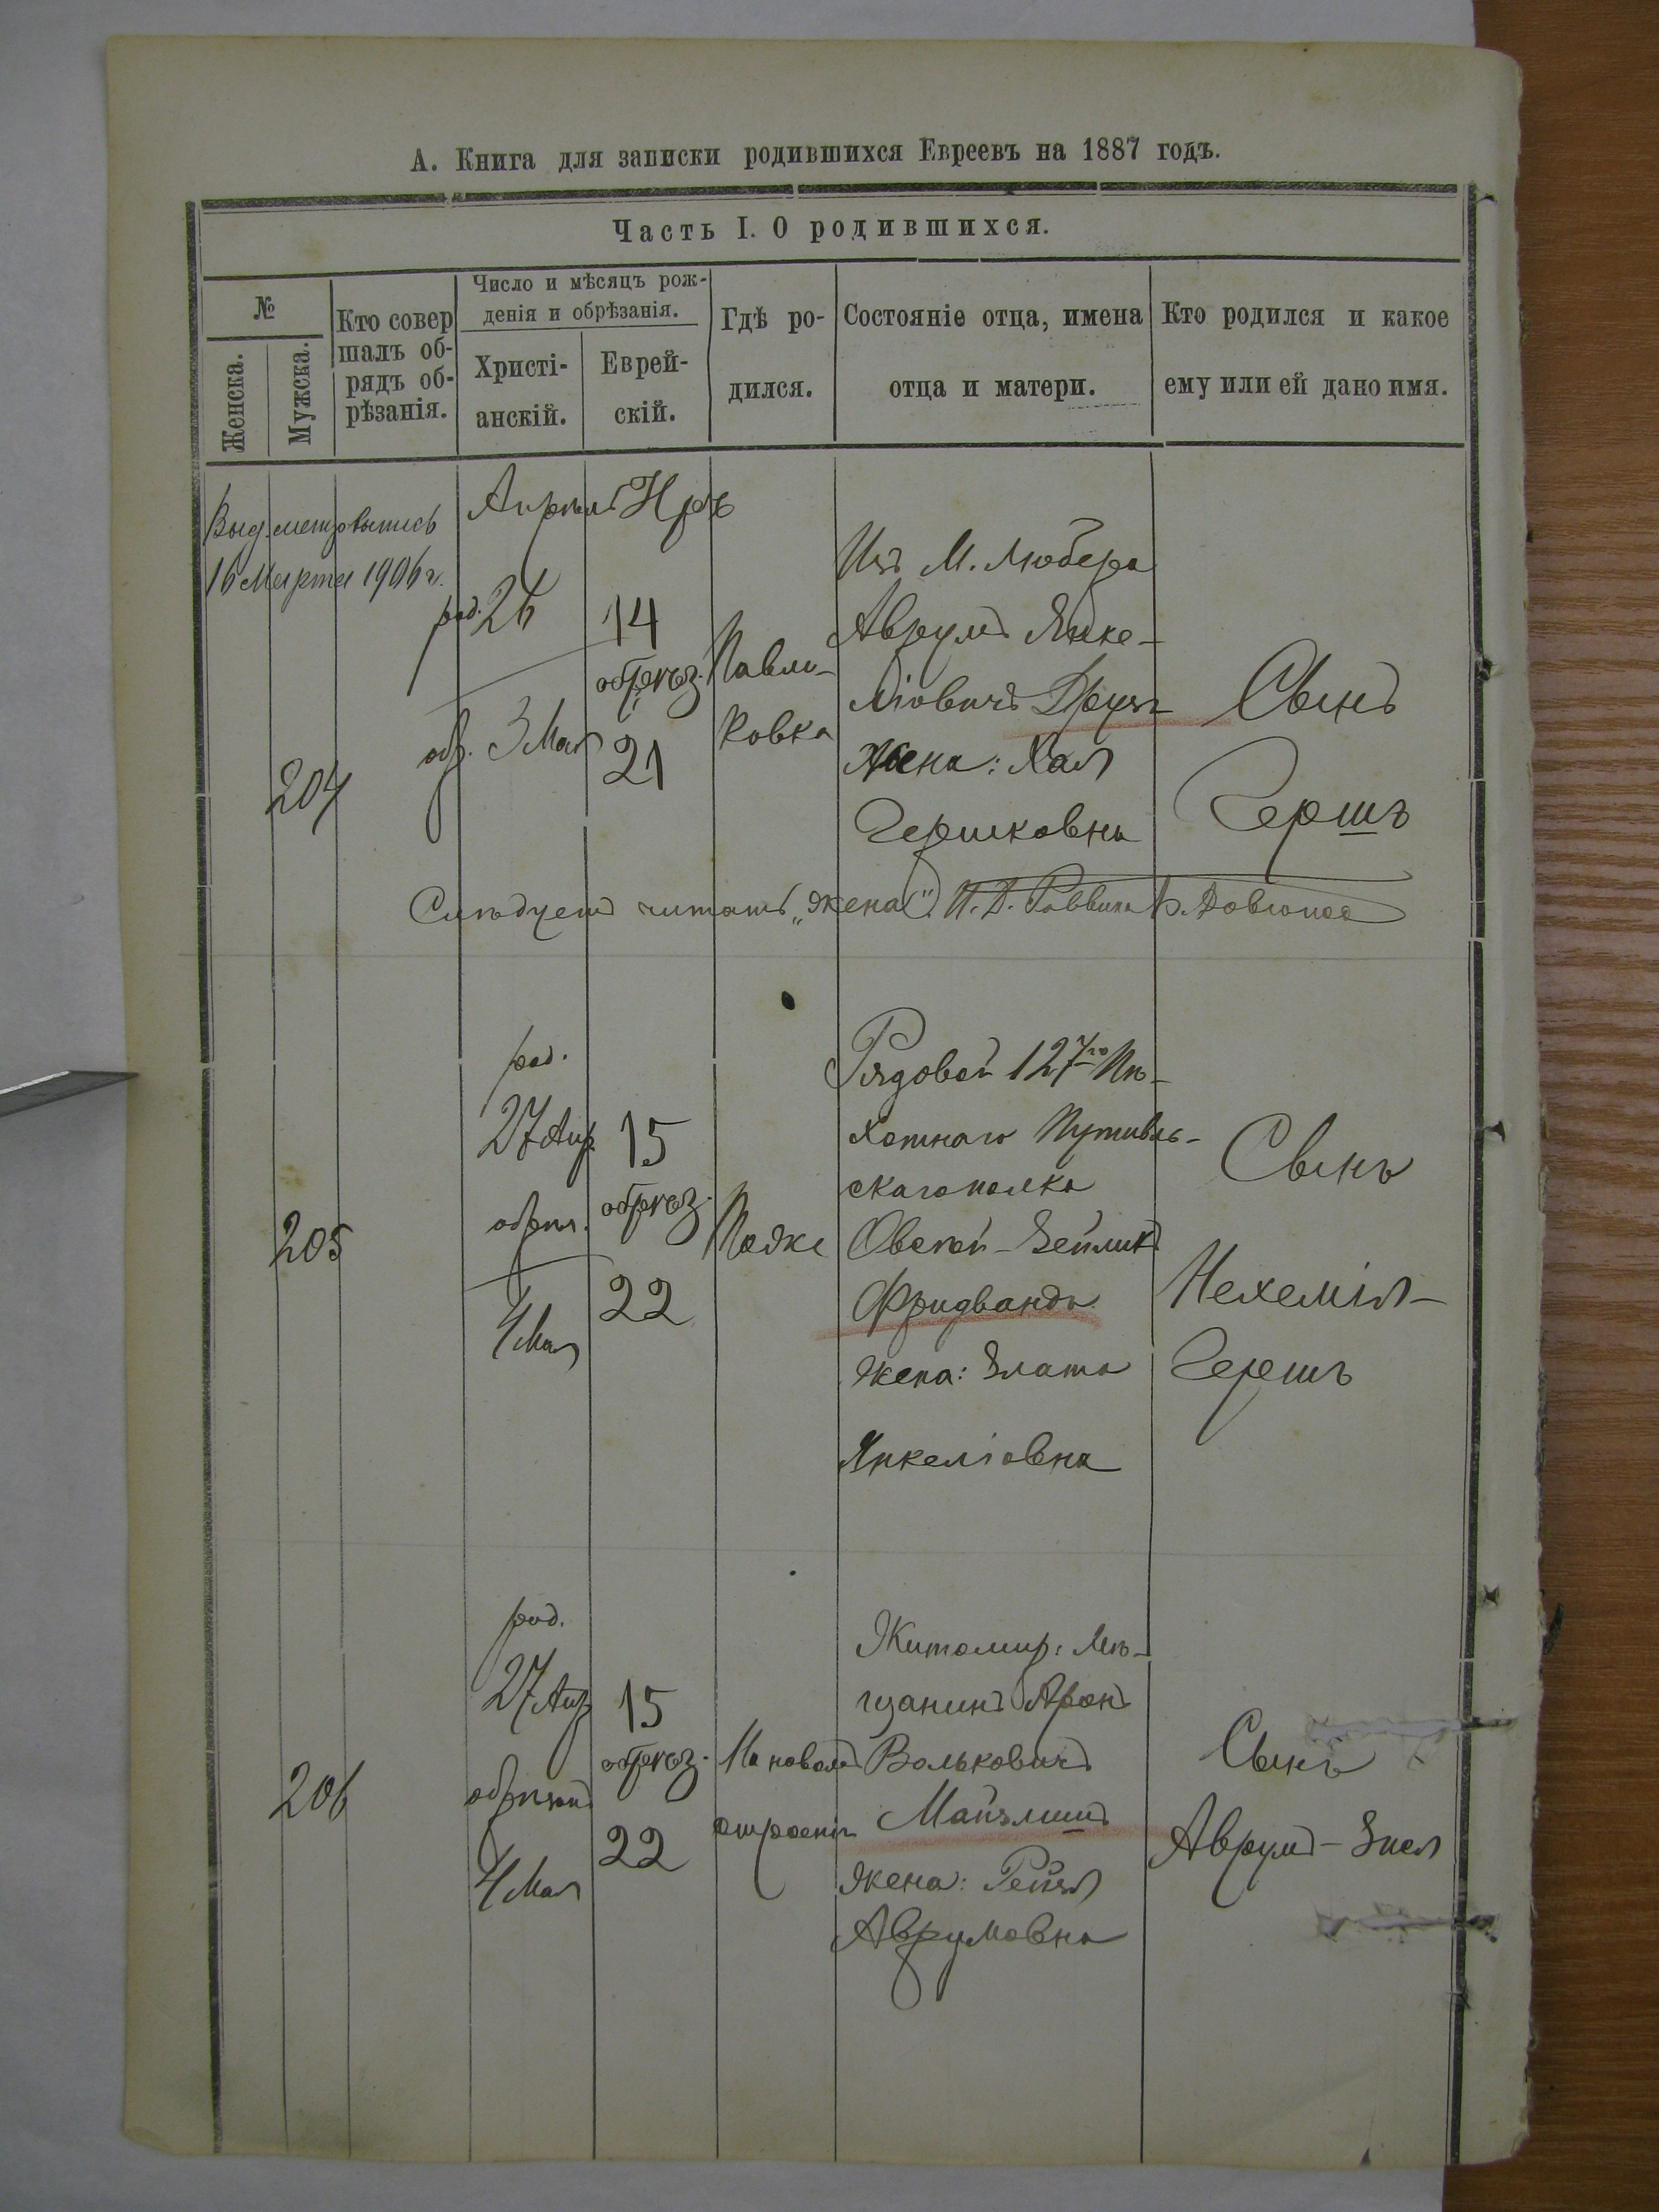 А. Книга для записки родившихся Евреевъ на 1887 годъ.
Часть I. О родившихся.
№
Женска.
Мужска.
Кто совер
шалъ об-
рядъ об-
рѣзанія.
Число и мѣсяцъ рож-
денія и обрѣзанія.
Христі-
анскій.
Еврей-
скій.
Гдѣ ро-
дился.
Состояніе отца, имена
отца и матери.
Кто родился и какое
ему или ей дано имя.
Выд. метр. выпись
16 Марта 1906 г.
204
Апрѣль
род. 26
обр. 3 Мая
Іяръ
14
обрѣз.
21
Павли-
ковка
Изъ М. Любера
Аврумъ Янке-
ліовичъ
Жена: Хая
Гершковна
Сынъ
Гершъ
Слѣдуетъ читать „жена“. И. Д. Раввина
205
род.
27 Апр.
обрѣз.
4 Мая
15
обрѣз.
22
Рядовой 127го Пѣ-
хотнаго Путивль-
скаго полка
Овсей-Зейликъ
Фридвандъ
Жена: Злата
Янкеліовна
Сынъ
Нехемія-
Гершъ
206
род.
27 Апр
обрѣзанъ
4 Мая
15
обрѣз.
22
На новомъ
строеніи
Житомир: Мѣ-
щанинъ Аронъ
Вольковичъ
Жена: Рейзя
Аврумовна
Сынъ
Аврумъ-